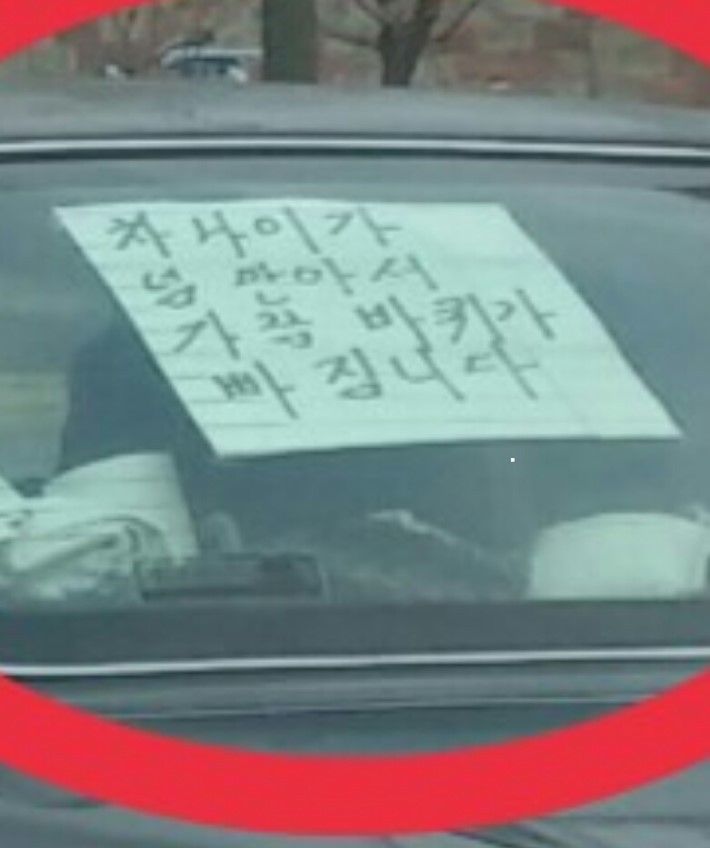 차 나이가
넘 만아서
가끔 바퀴가
빠 집니다